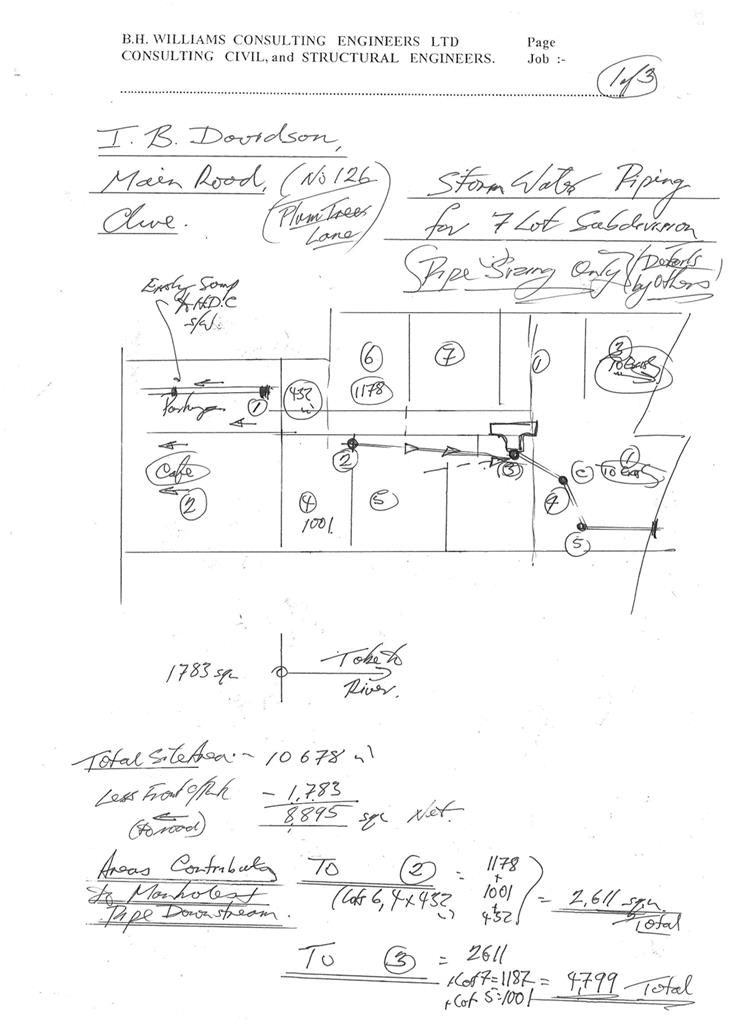 B.H. WILLIAMS CONSULTING ENGINEERS LTD
CONSULTING CIVIL, and STRUCTURAL ENGINEERS.
Page
Job :-
1 of 3
I. B. Davidson,
Main Road, (No 126
Plum Trees
Lane)
Clive.
Storm Water Piping
for 7 Lot Subdivision
(Pipe Sizing Only) (Details
by Others)
Sump
H.D.C
S/W
6
1178
7
1
2
To East
432
m²
1
Parking
Cafe
2
2
3
4
1001
5
C
4
5
1
To East
1783 sqm
Take to
River.
Total Site Area:- 10678 m²
Less Front - 1,783
(to road)
8,895 sqm Net.
Areas Contributing
to Manholes &
Pipe Downstream.
To 2 = 1178
+
1001
+
432
(Lots 6, 4 x 432
m²)
= 2,611 sqm
Total
To 3 = 2611
+Lot 7 = 1187
+Lot 5 = 1001
= 4,799 Total